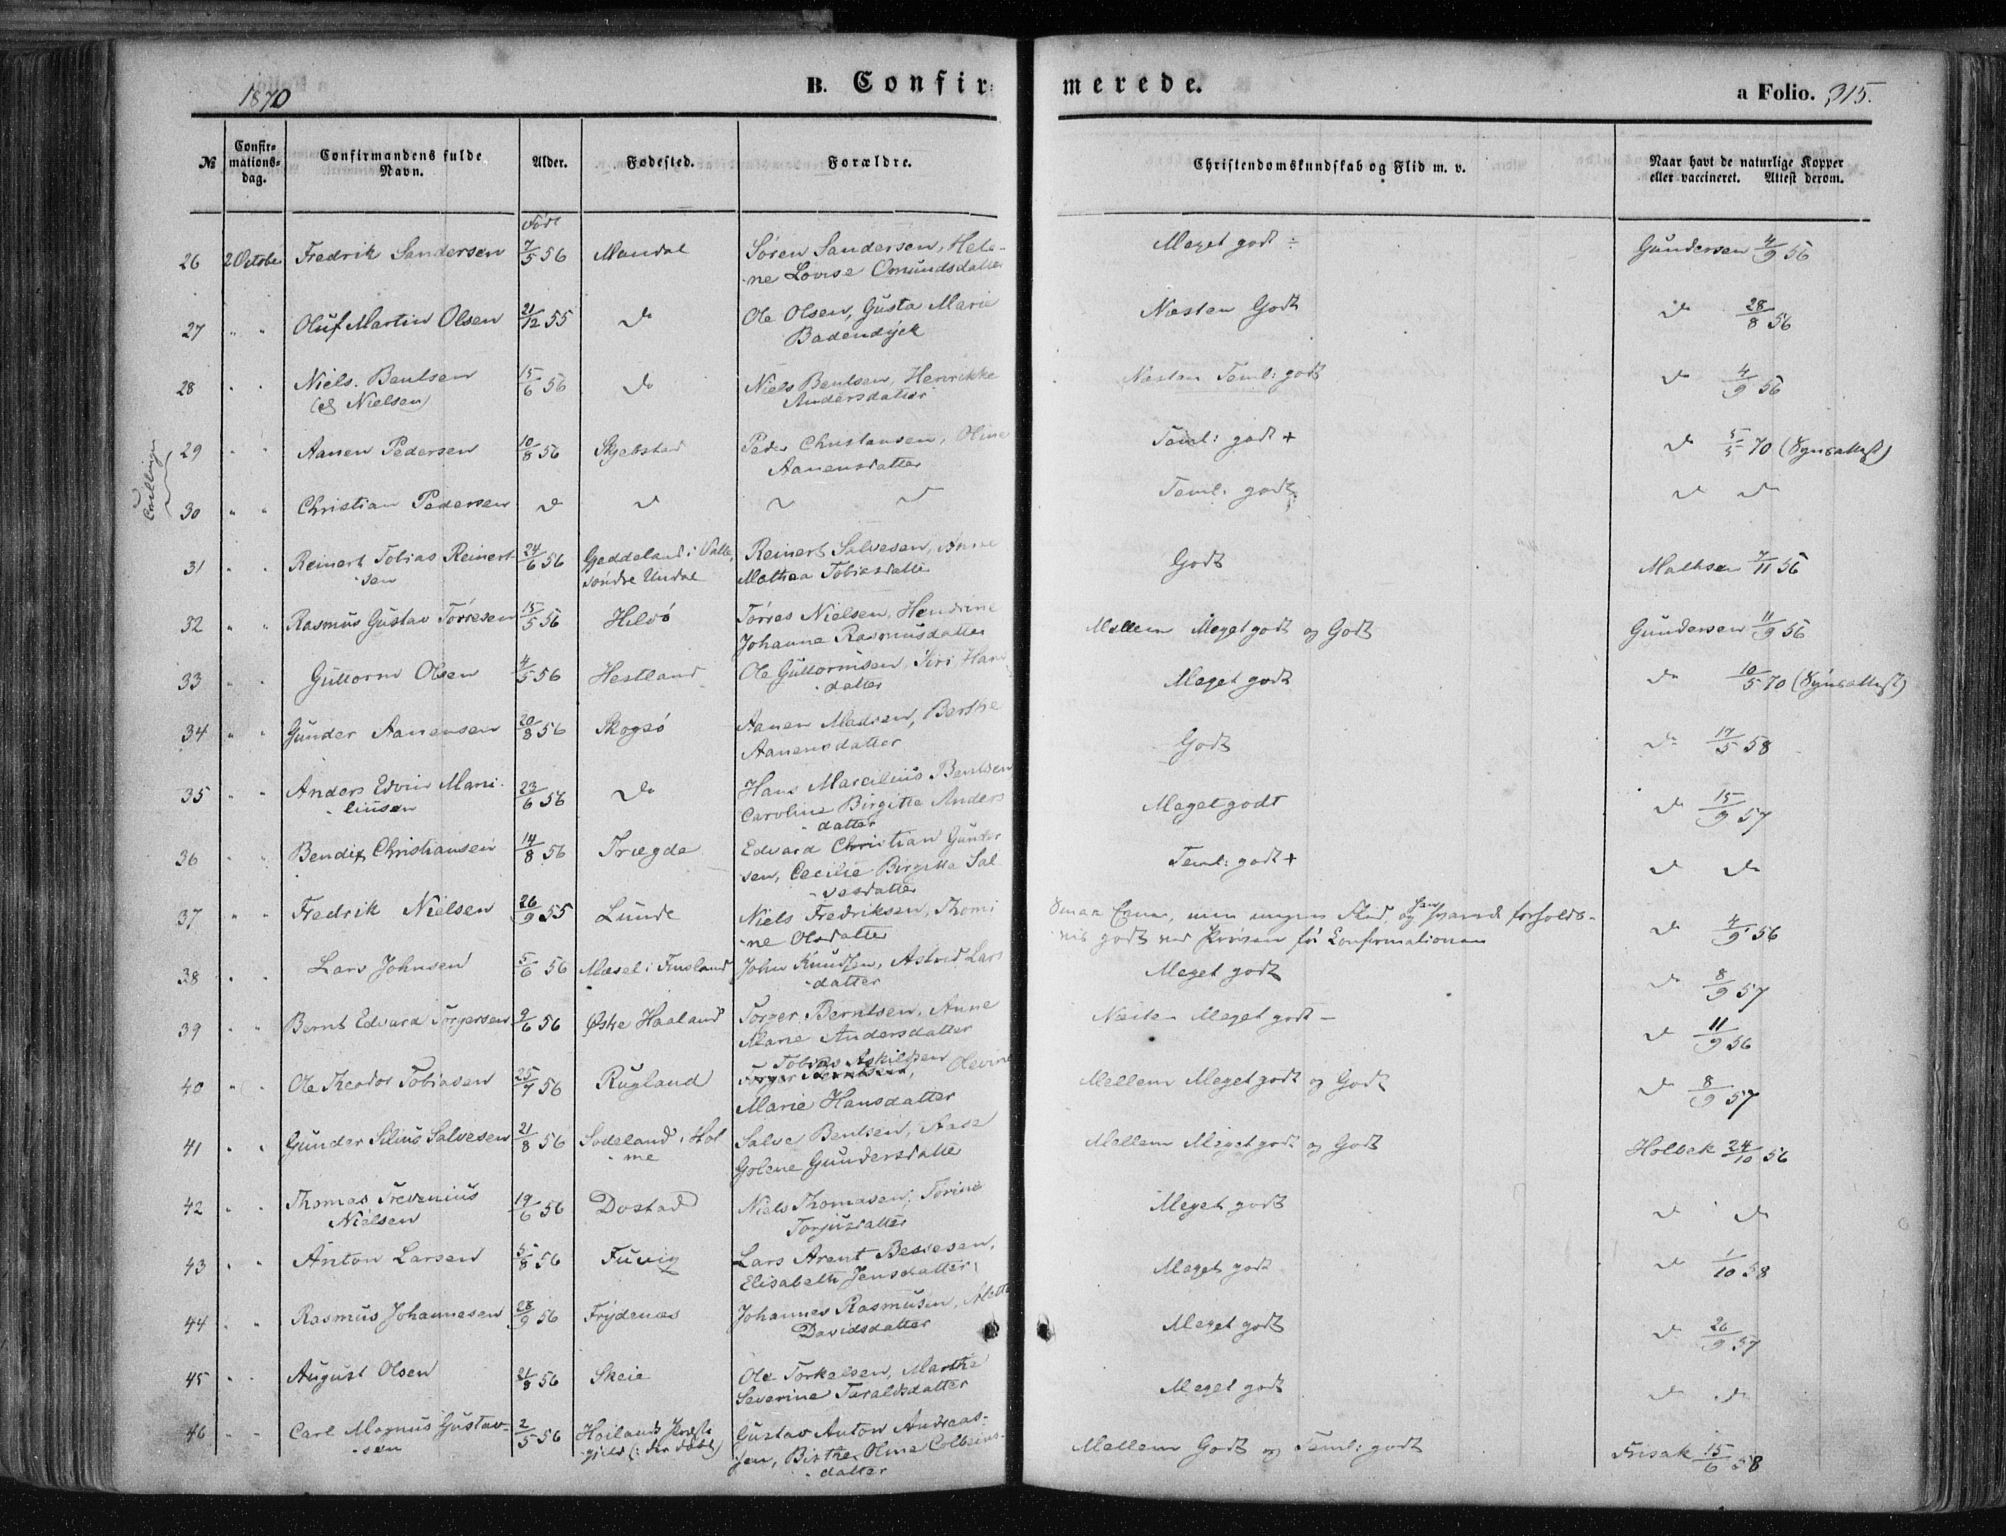 1870
B. Confirmerede.
a Folio. 315.
№ Confirmations-dag. Confirmandens fulde Navn. Alder. Fødested. Forældre. Christendomskundskab og Flid m. v. Naar havt de naturlige Kopper eller vaccineret. Attest derom.
Født
26 2 October Fredrik Sandersen 7/5 56 Mandal Søren Sandersen, Hele- Meget godt ÷ Gundersen 4/9 56
-ne Lovise Omundsdatter
27 " " Oluf Martin Olsen 21/12 55 do Ole Olsen, Gusta Marie Næsten Godt do 28/8 56
Badendyck
28 " " Niels Bentsen 15/6 56 do Niels Bentsen, Henrikke Næsten Teml: godt do 4/9 56
(el Nielsen) Andersdatter
Tvillinger
29 " " Aanen Pedersen 10/8 56 Skjebstad Peder Christiansen, Oline Teml: godt + do 5/5 70 (Synsattest)
Aanensdatter
30 " " Christian Pedersen do do do do Teml: godt do do
31 " " Reinert Tobias Reinert- 24/6 56 Geddeland i Valle, Reinert Salvesen, Anne Godt Mathsen 7/11 56
sen søndre Undal Mathea Tobiasdatter
32 " " Rasmus Gustav Tørresen 15/5 56 Hilsø Tørres Nielsen, Hendrine Mellem Meget godt og Godt Gundersen 11/9 56
Johanne Rasmusdatter
33 " " Guttorm Olsen 4/5 56 Hestland Ole Guttormsen, Siri Hans Meget godt do 10/5 70 (Synsattest)
-datter
34 " " Gunder Aanensen 20/8 56 Skogsø Aanen Madsen, Berthe Godt do 17/5 58
Aanensdatter
35 " " Anders Edvin Marci- 23/6 56 do Hans Marcilius Bentsen Meget godt do 15/9 57
-liusen Caroline Birgitte Anders
-datter
36 " Bendix Christiansen 14/8 56 Trægde Edvard Christian Gunder Teml: godt + do do
sen, Cecilie Birgitte Sal
-vesdatter
37 " " Fredrik Nielsen 26/9 55 Lunde Niels Fredriksen, Thomi Smaa Evner, men megen Flid, og han svared forholds- do 4/9 56
-ne Olsdatter vis godt ved Prøven før Confirmationen
38 " " Lars Johnsen 5/6 56 Mæsel i Finsland John Knudsen, Astrid Lars Meget godt do 8/9 57
-datter
39 " " Bernt Edvard Torgersen 9/6 56 Østre Haaland Torger Berntsen, Anne Næsten Meget godt – do 11/9 56
Marie Andersdatter
Tobias Askildsen
40 " " Ole Theodor Tobiasen 25/7 56 Rugland Torger Berntsen, Olevine Mellem Meget godt og Godt do 8/9 57
Marie Hansdatter
41 " " Gunder Silius Salvesen 21/8 56 Sodeland i Hol Salve Bentsen, Aase Mellem Meget godt og Godt Holbek 24/10 56
-me Golene Gundersdatter
42 " " Thomas Trevenius 19/6 56 Dostad Niels Thomasen, Torine Meget godt do do
Nielsen Torjusdatter
43 " " Anton Larsen 5/8 56 Fuvig Lars Arent Bessesen, Meget godt do 1/10 58
Elisabeth Jensdatter
44 " " Rasmus Johannesen 28/9 56 Frydenæs Johannes Rasmusen, Alette Meget godt do 26/9 57
Davidsdatter
45 " " August Olsen 21/8 56 Skeie Ole Torkelsen, Marthe Meget godt do do
Severine Taraldsdatter
46 " " Carl Magnus Gustav- 2/5 56 Høilands Præste Gustav Anton Andreas- Mellem Godt og Teml: godt Frisak 15/6 58
-sen gjeld (: der døbt) sen, Birthe Oline Colbeins-
-datter